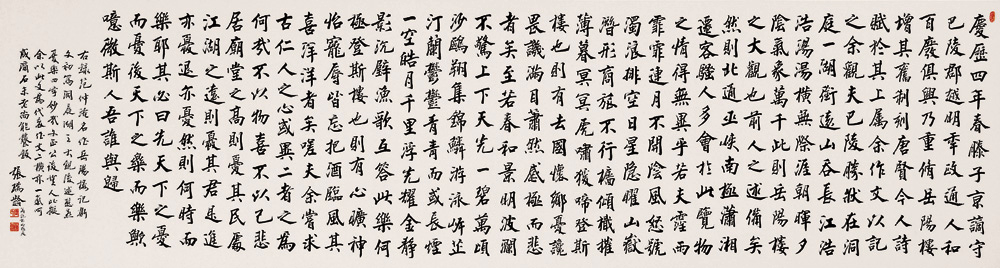 慶歷四年春滕子京謫守
巴陵郡越明年政通人和
百廢俱興乃重脩岳陽樓
增其舊制刻唐賢今人詩
賦於其上屬余作文以記
之余觀夫巴陵勝狀在洞
庭一湖銜遠山吞長江浩
浩湯湯橫無際涯朝暉夕
陰氣象萬千此則岳陽樓
之大觀也前人之述備矣
然則北通巫峽南極瀟湘
遷客騷人多會於此覽物
之情得無異乎若夫霪雨
霏霏連月不開陰風怒號
濁浪排空日星隱曜山嶽
潛形商旅不行檣傾檝摧
薄暮冥冥虎嘯猿啼登斯
樓也則有去國懷鄉憂讒
畏譏滿目蕭然感極而悲
者矣至若春和景明波瀾
不驚上下天光一碧萬頃
沙鷗翔集錦鱗游泳岸芷
汀蘭鬱鬱青青而或長煙
一空皓月千里浮光耀金靜
影沉璧漁歌互答此樂何
極登斯樓也則有心曠神
怡寵辱皆忘把酒臨風其
喜洋洋者矣嗟夫余嘗求
古仁人之心或異二者之為
何哉不以物喜不以己悲
居廟堂之高則憂其民處
江湖之遠則憂其君是進
亦憂退亦憂然則何時而
樂耶其必曰先天下之憂
而憂後天下之樂而樂歟
噫微斯人吾誰與歸
右錄范仲淹名作岳陽樓記
張瑞齡